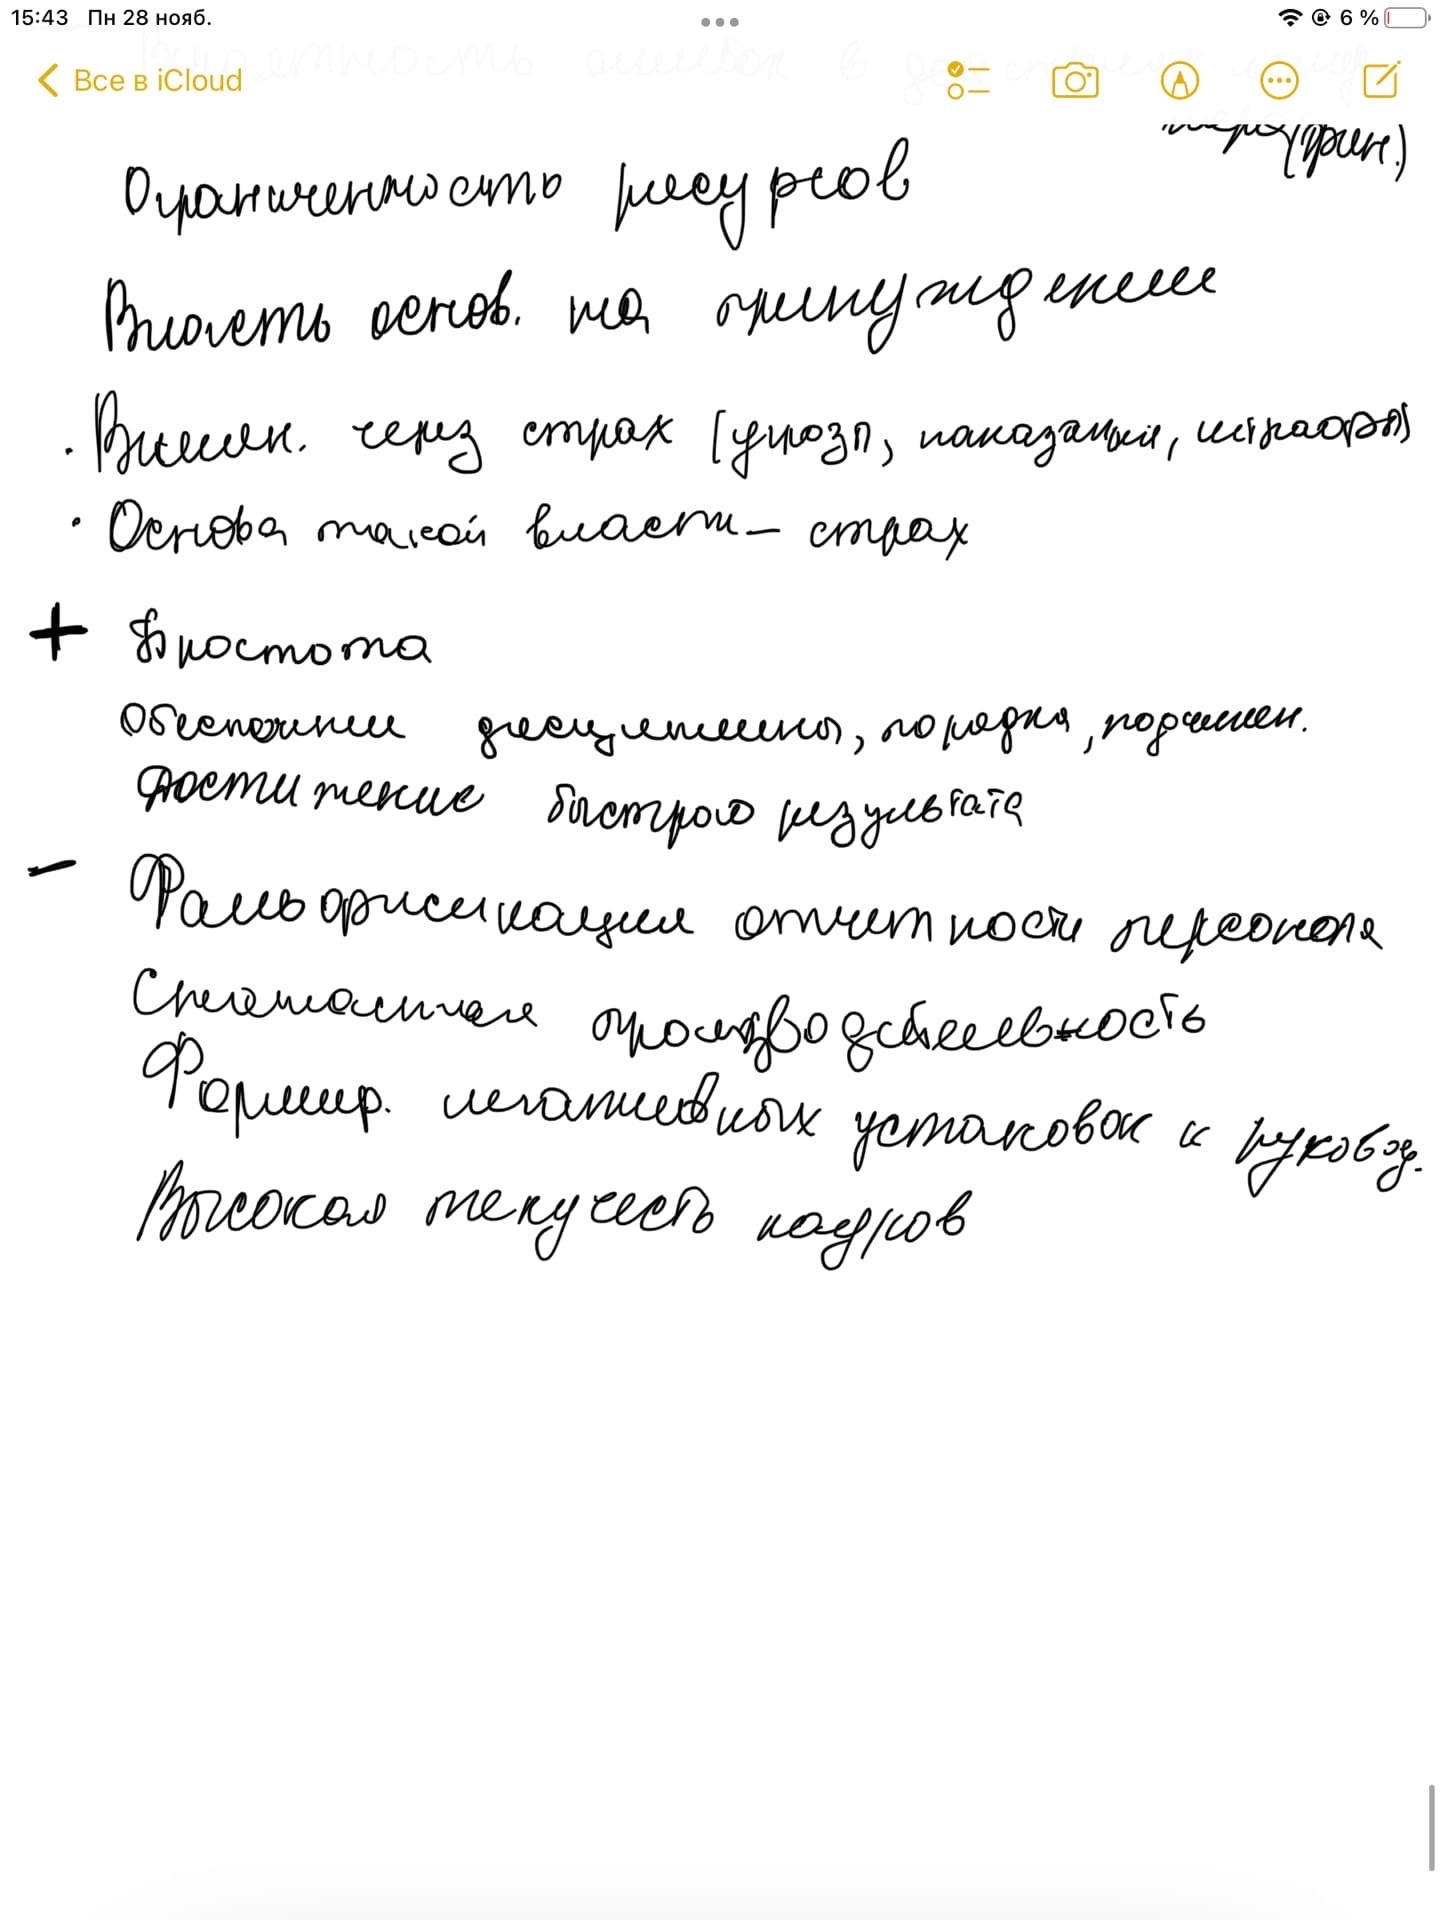 15:43 Пн 28 нояб. 6 %
Все в iCloud
(фин.)
Ограниченность ресурсов
Власть основ. на принуждении
· Влиян. через страх (угрозы, наказания, штрафы)
· Основа такой власти – страх
+ Простота
Обеспечении дисциплины, порядка, подчинен.
Достижение быстрого результата
– Фальсификация отчетности персонала
Спонтанная производительность
Формир. негативных установок к руковод.
Высокая текучесть кадров